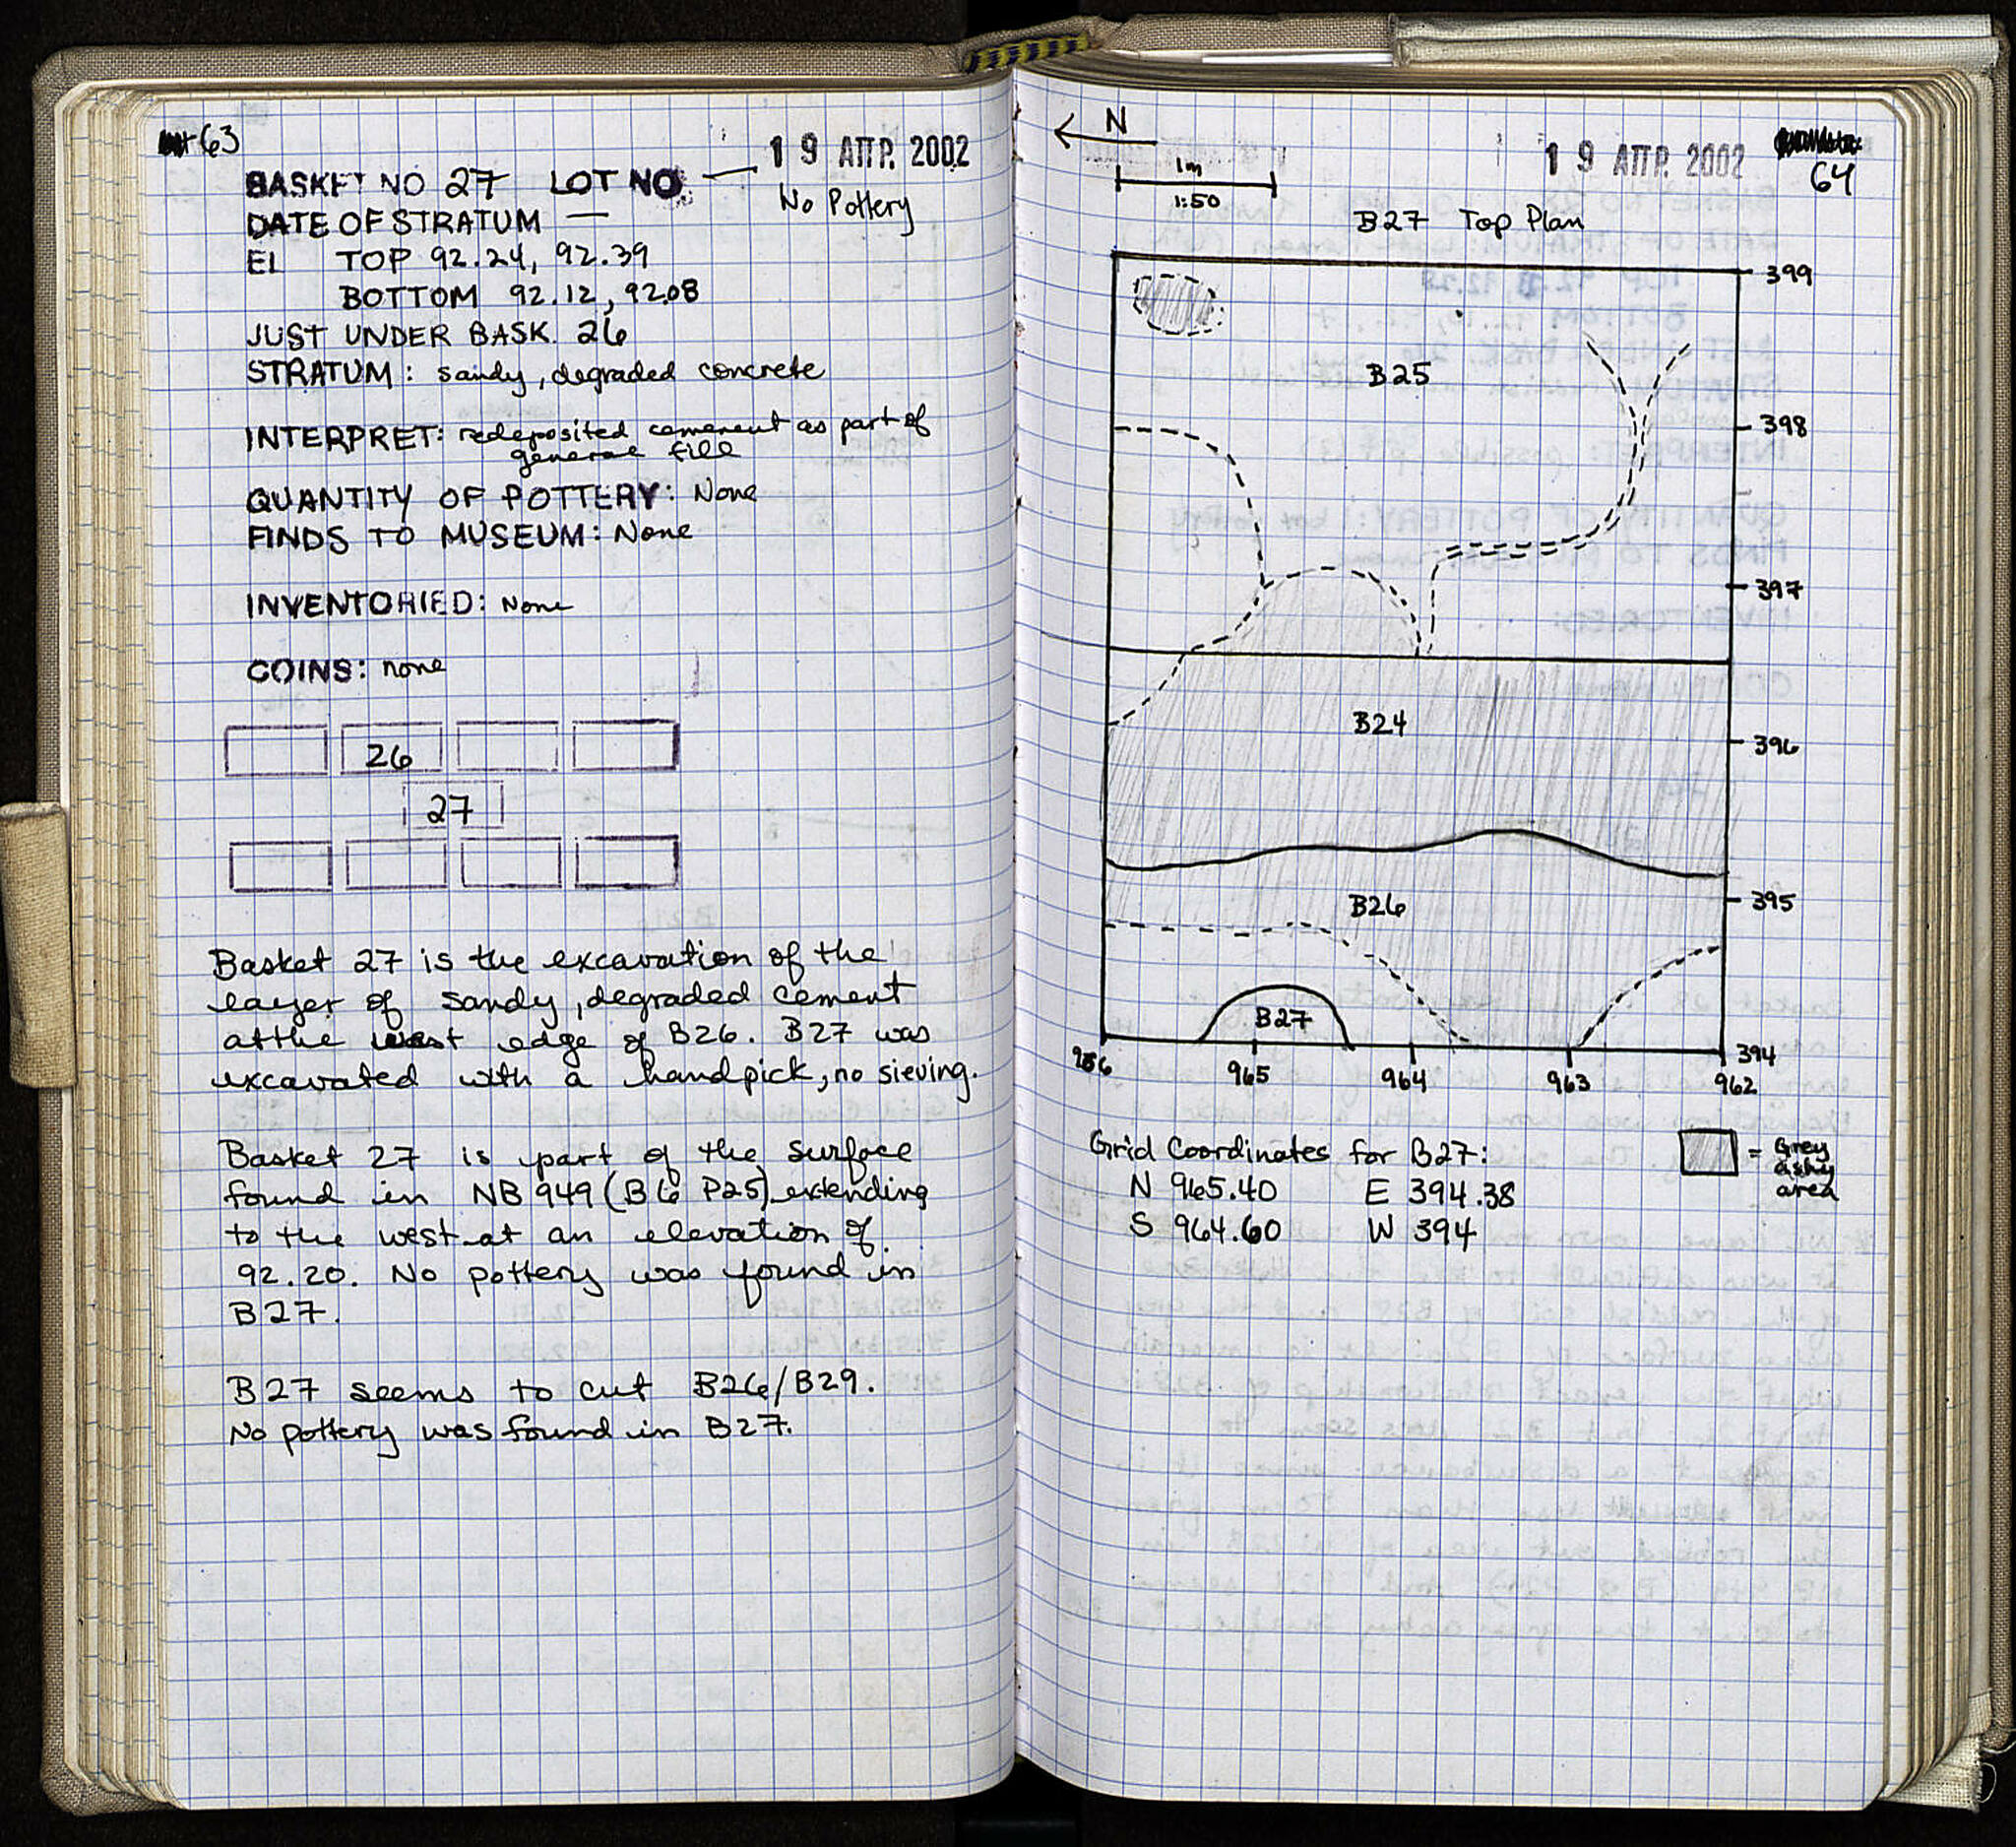 63
19 ΑΠΡ. 2002
BASKET NO 27 LOT NO —
No Pottery
DATE OF STRATUM —
EL TOP 92.24, 92.39
BOTTOM 92.12, 92.08
JUST UNDER BASK. 26
STRATUM: sandy, degraded concrete
INTERPRET: redeposited cement as part of
general fill
QUANTITY OF POTTERY: None
FINDS TO MUSEUM: None
INVENTORIED: None
COINS: none
26
27
Basket 27 is the excavation of the
layer of sandy, degraded cement
at the west edge of B26. B27 was
excavated with a handpick, no sieving.
Basket 27 is part of the surface
found in NB 949 (B6 P25) extending
to the west at an elevation of
92.20. No pottery was found in
B27.
B27 seems to cut B26/B29.
No pottery was found in B27.
N
1m
1:50
19 ΑΠΡ. 2002
64
B27 Top Plan
399
B25
398
397
B24
396
395
B26
B27
394
966 965 964 963 962
Grid Coordinates for B27:
N 965.40 E 394.38
S 964.60 W 394
= Grey
ashy
area